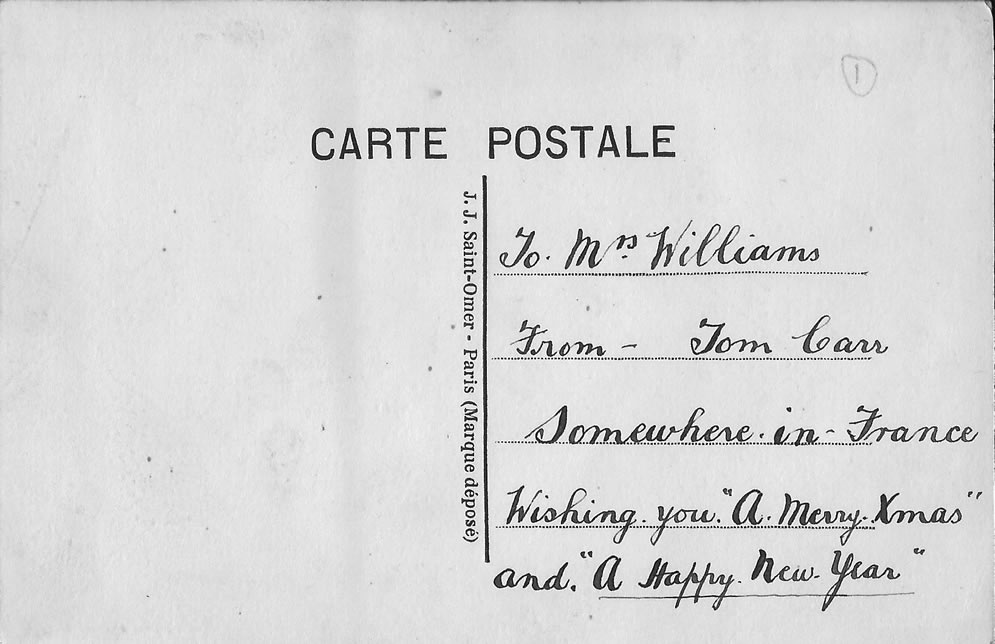 1
CARTE POSTALE
J. J. Saint-Omer - Paris (Marque déposé)
To. Mrs. Williams
From - Tom Carr
Somewhere. in - France
Wishing. you. "A. Merry. Xmas"
and. "A Happy. New. Year"